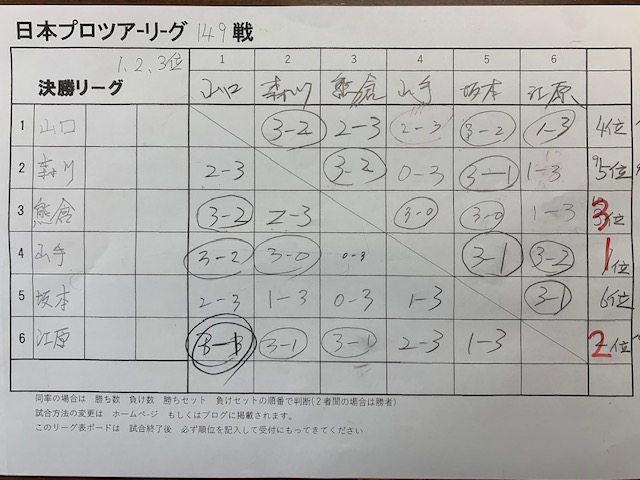 日本プロツアーリーグ 149戦
1.2.3位
決勝リーグ
1 2 3 4 5 6
山口 森川 熊倉 山手 坂本 江原
1 山口 3-2 2-3 2-3 3-2 1-3 4位
2 森川 2-3 3-2 0-3 3-1 1-3 5位
3 熊倉 3-2 2-3 3-0 3-0 1-3 3位
4 山手 3-2 3-0 0-3 3-1 3-2 1位
5 坂本 2-3 1-3 0-3 1-3 3-1 6位
6 江原 3-1 3-1 2-3 1-3 2位
同率の場合は 勝ち数 負け数 勝ちセット 負けセットの順番で判断(2者間の場合は勝者)
試合方法の変更は ホームページ もしくはブログに掲載されます。
このリーグ表ボードは 試合終了後 必ず順位を記入して受付にもってきてください